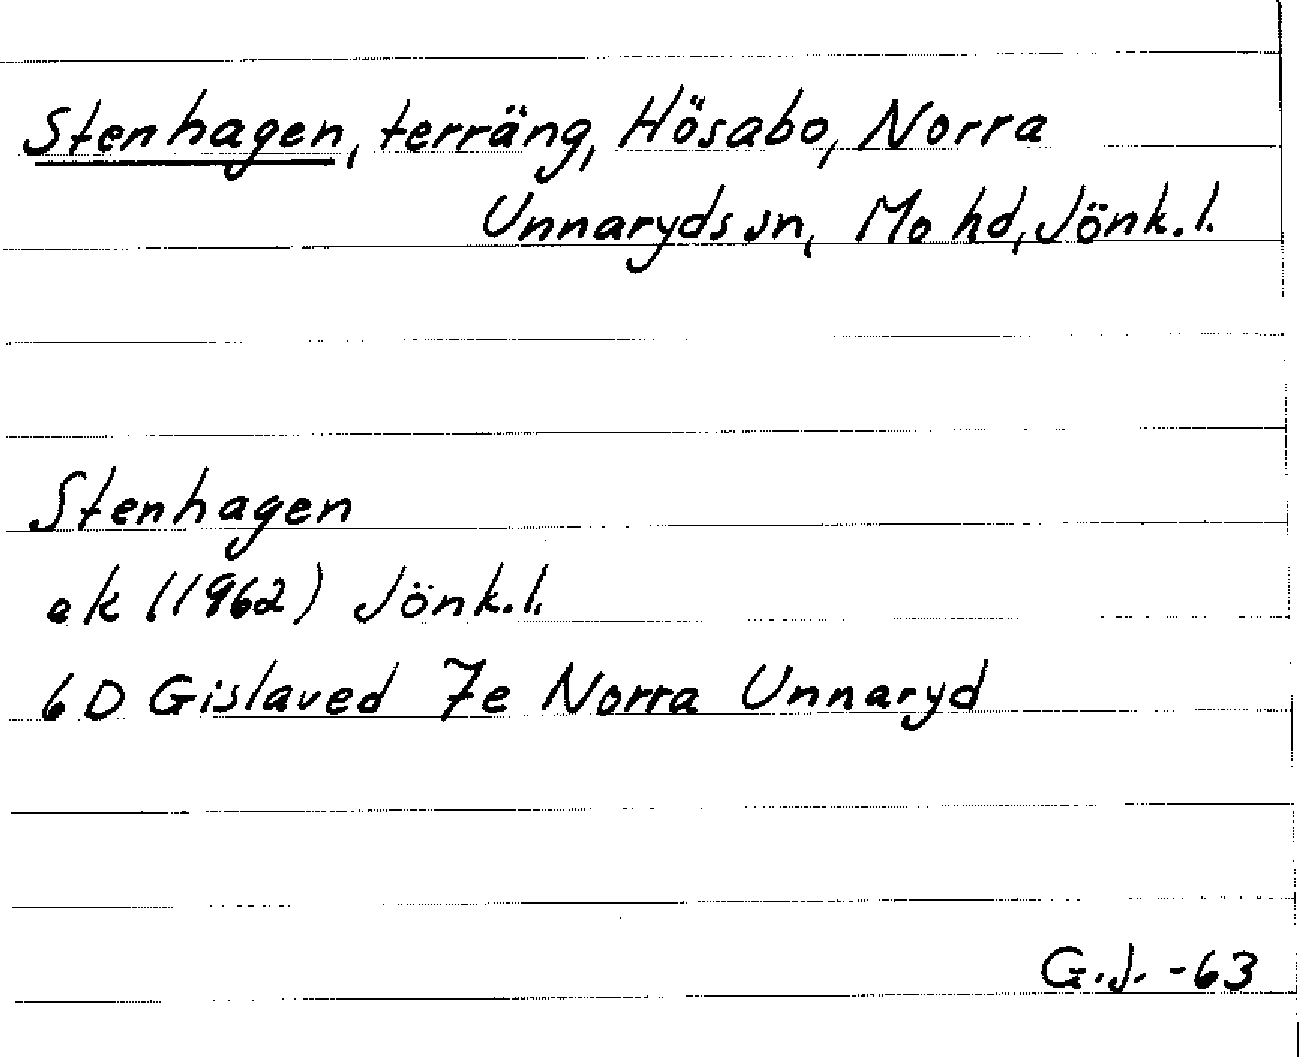 Stenhagen, terräng, Hösabo, Norra
Unnaryds sn, Mo hd, Jönk.l.
Stenhagen
ek (1962) Jönk.l.
6D Gislaved 7e Norra Unnaryd
G.J. -63